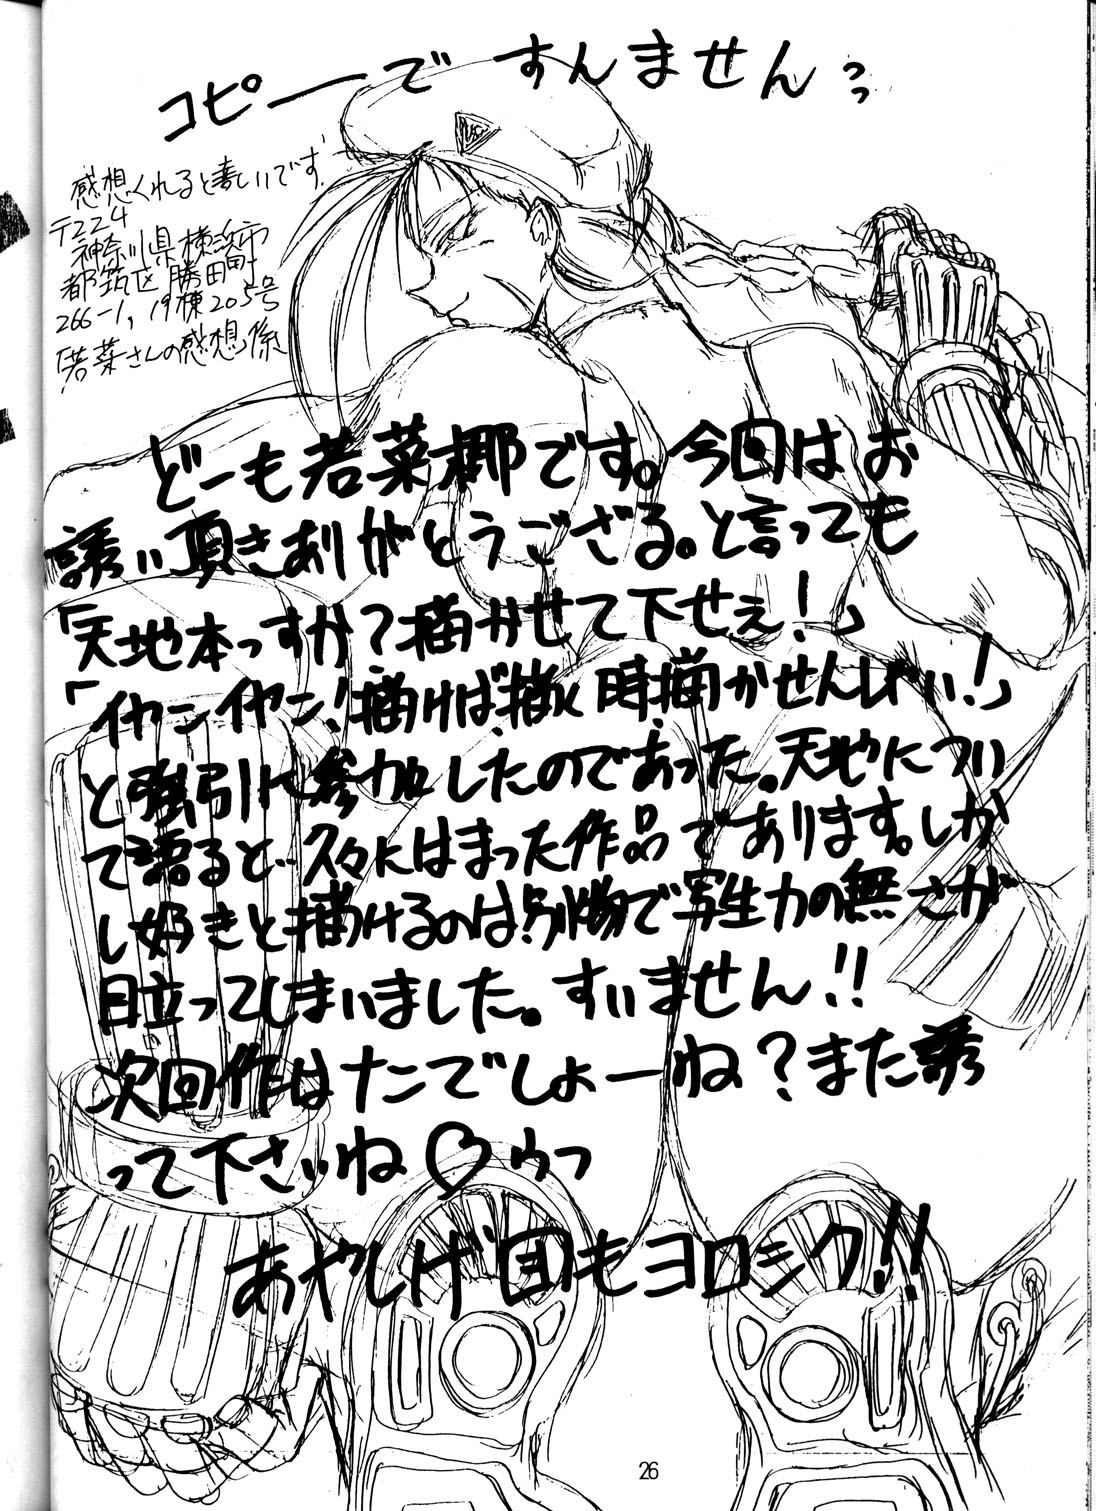 コピーですんませんっ
感想くれると嬉しいです
〒224
神奈川県横浜市
都筑区勝田町
266-1, 19棟205号
「若菜さんの感想係
どーも若菜椰です。今回はお
誘い頂きありがとうござる。と言っても
「天地本っすか?描かせて下せぇ!」
「イヤンイヤン!描けば描く時描かせんしゃい!」
と強引に参加したのであった。天地につい
て語ると…久々にはまった作品であります。しか
し好きと描けるのは別物で写生力の無さが
目立ってしまいました。すいません!!
次回作はナニでしょーね?また誘
って下さいね♡ウっ
あやしげ団もヨロシク!!
26